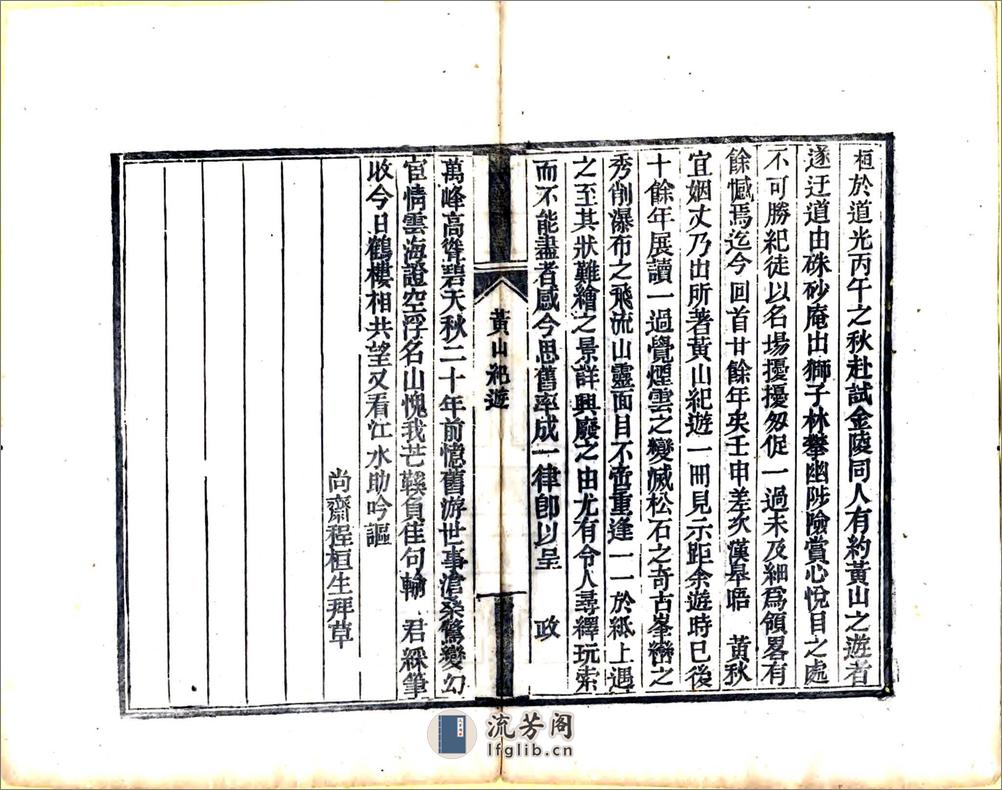 桓於道光丙午之秋赴試金陵同人有約黃山之遊者
遂迂道由硃砂庵出獅子林攀幽陟險賞心悅目之處
不可勝紀徒以名場擾擾匆促一過未及細爲領畧有
餘憾焉迄今回首廿餘年矣壬申差次漢皋晤 黃秋
宜姻丈乃出所著黃山紀遊一冊見示距余遊時已後
十餘年展讀一過覺煙雲之變滅松石之奇古峯巒之
秀削瀑布之飛流山靈面目不啻重逢一一於紙上遇
之至其狀難繪之景詳興廢之由尤有令人尋繹玩索
而不能盡者感今思舊率成一律卽以呈 政
黃山紀遊
萬峰高聳碧天秋二十年前憶舊游世事滄桑驚變幻
宦情雲海證空浮名山愧我芒鞵負佳句輸 君綵筆
收今日鶴樓相共望又看江水助吟謳
尚齋程桓生拜草
流芳阁
lfglib.cn